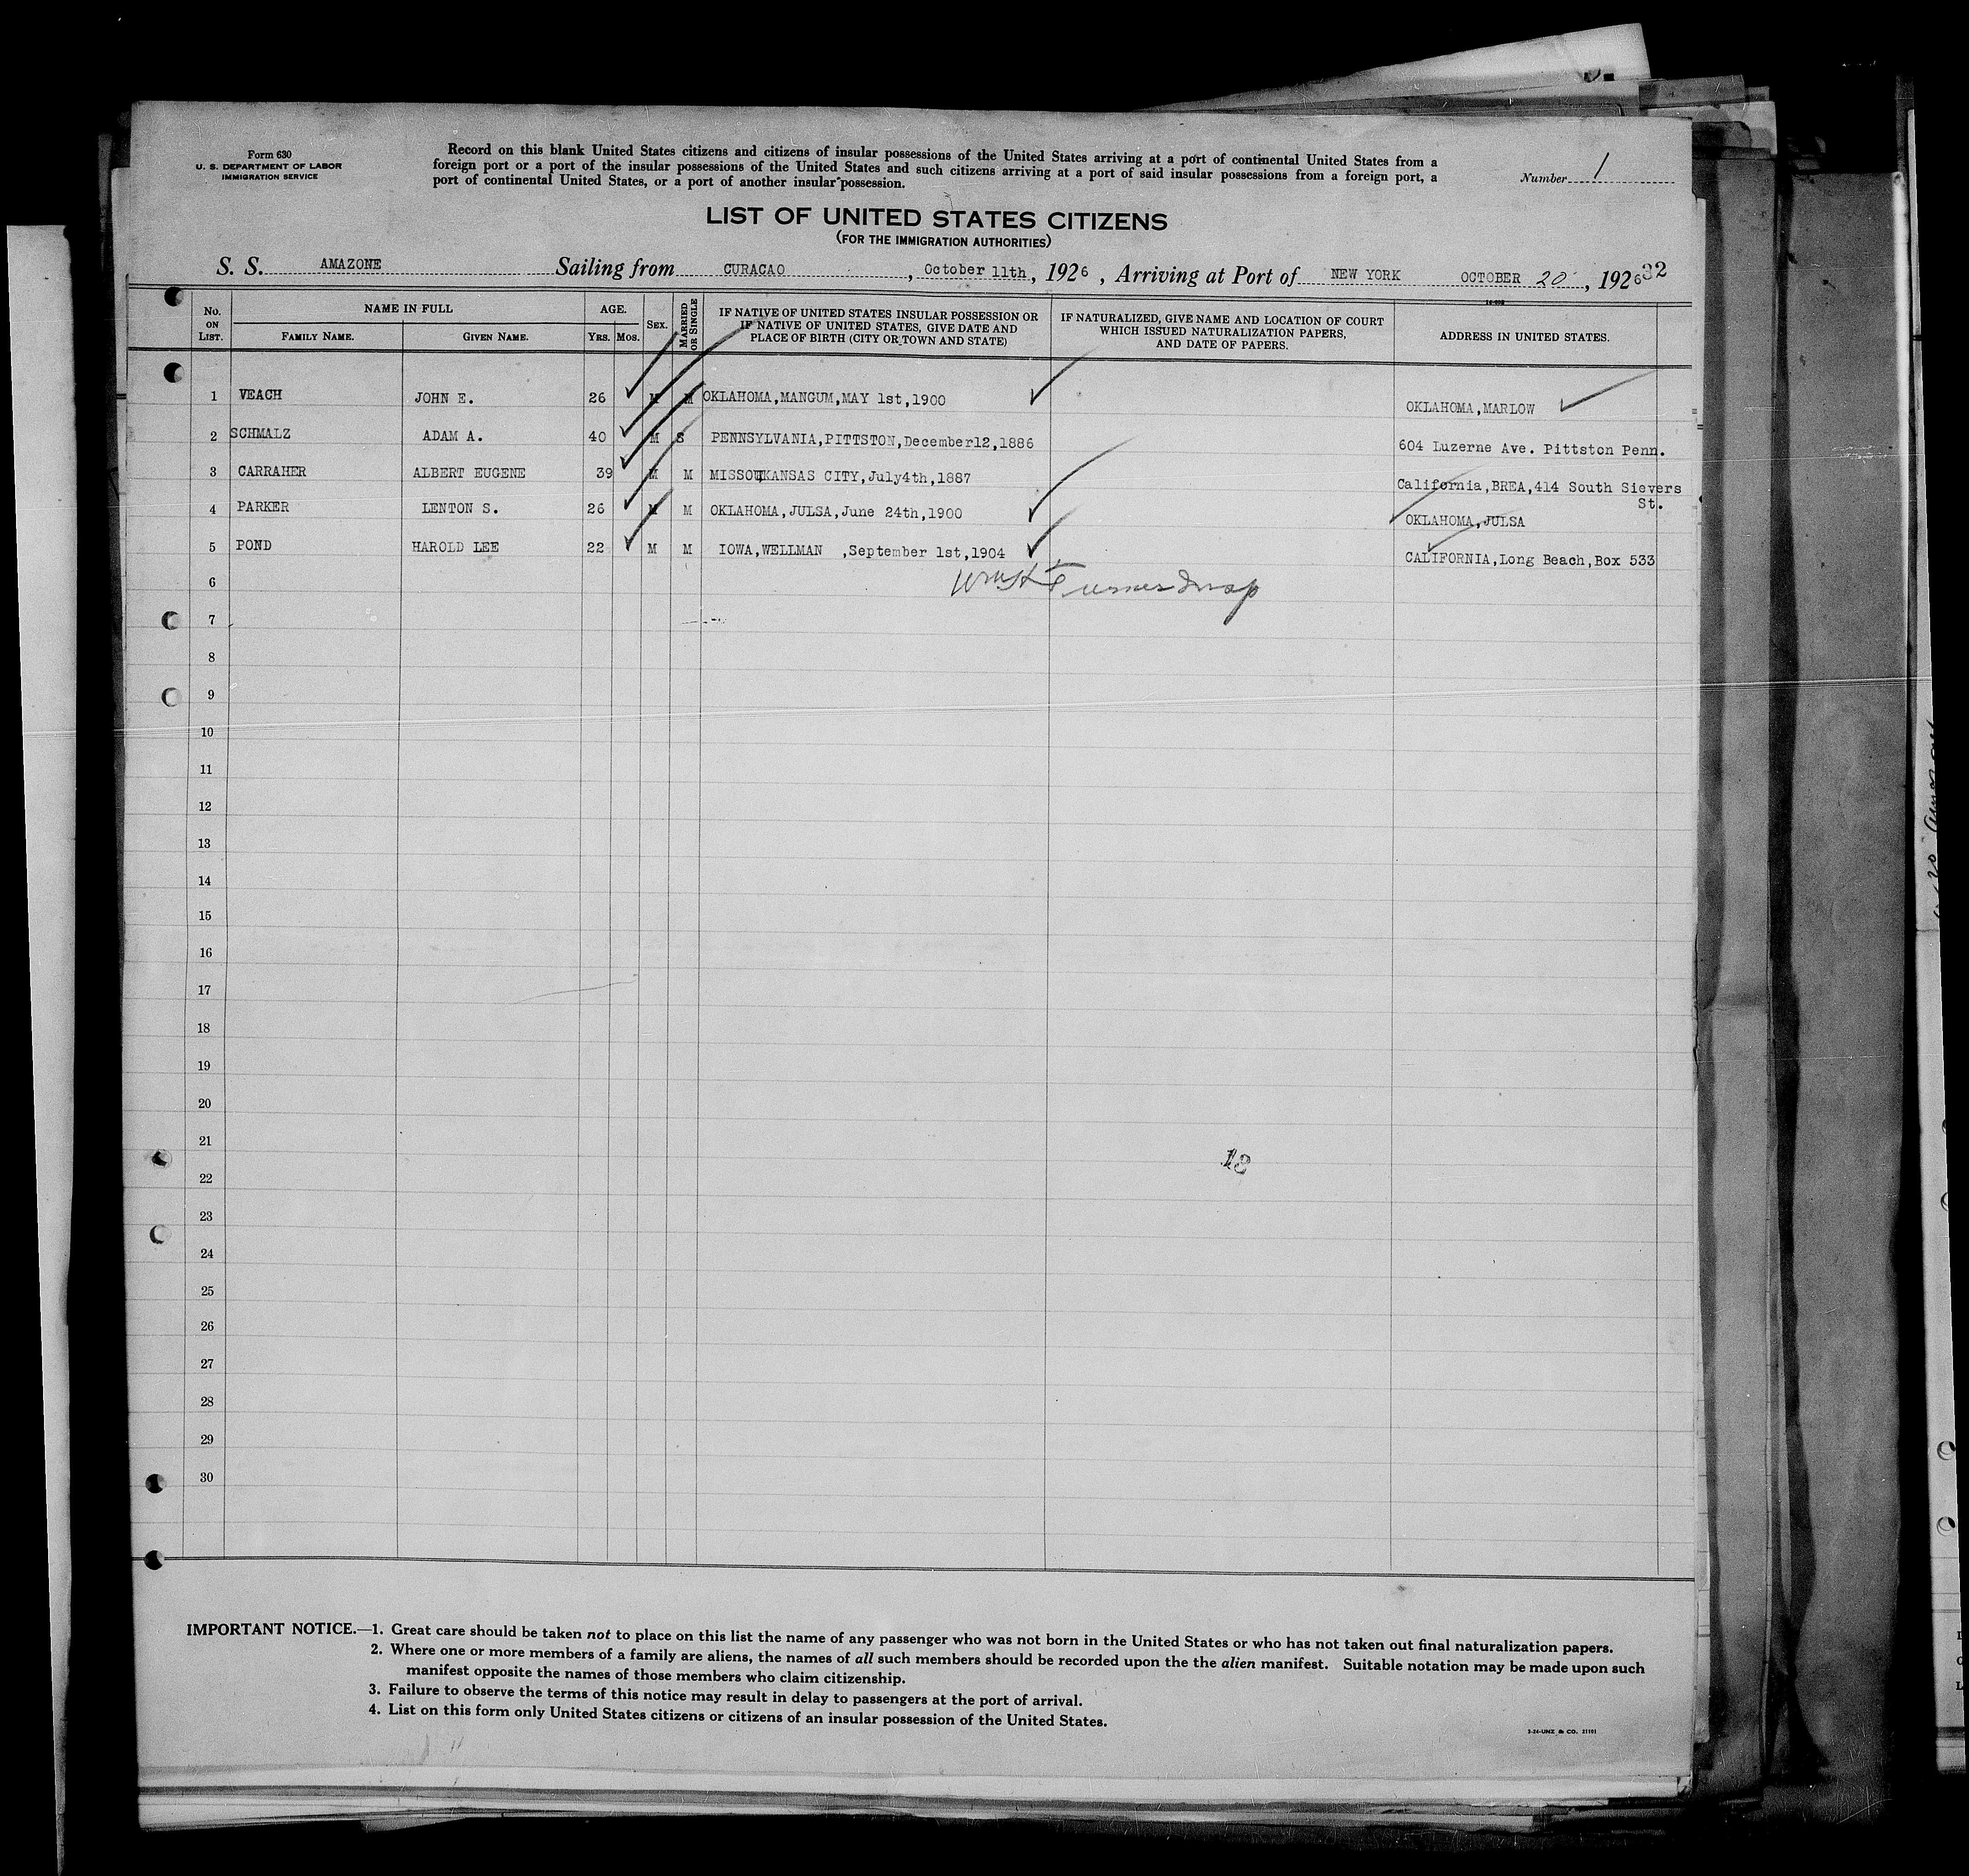 Form 630
U. S. DEPARTMENT OF LABOR
IMMIGRATION SERVICE
Record on this blank United States citizens and citizens of insular possessions of the United States arriving at a port of continental United States from a
foreign port or a port of the insular possessions of the United States and such citizens arriving at a port of said insular possessions from a foreign port, a
port of continental United States, or a port of another insular possession.
Number 1
LIST OF UNITED STATES CITIZENS
(FOR THE IMMIGRATION AUTHORITIES)
S. S. AMAZONE Sailing from CURACAO, October 11th, 1926, Arriving at Port of NEW YORK OCTOBER 20, 1926 32
No. ON LIST. NAME IN FULL AGE. SEX. MARRIED OR SINGLE IF NATIVE OF UNITED STATES INSULAR POSSESSION OR IF NATIVE OF UNITED STATES, GIVE DATE AND PLACE OF BIRTH (CITY OR TOWN AND STATE) IF NATURALIZED, GIVE NAME AND LOCATION OF COURT WHICH ISSUED NATURALIZATION PAPERS, AND DATE OF PAPERS. ADDRESS IN UNITED STATES.
FAMILY NAME. GIVEN NAME. YRS. MOS.
1 VEACH JOHN E. 26 M M OKLAHOMA,MANGUM,MAY 1st,1900 OKLAHOMA,MARLOW
2 SCHMALZ ADAM A. 40 M S PENNSYLVANIA,PITTSTON,December12,1886 604 Luzerne Ave. Pittston Penn.
3 CARRAHER ALBERT EUGENE 39 M M MISSOU,KANSAS CITY,July4th,1887 California,BREA,414 South Sievers St.
4 PARKER LENTON S. 26 M M OKLAHOMA,JULSA,June 24th,1900 OKLAHOMA,JULSA
5 POND HAROLD LEE 22 M M IOWA,WELLMAN ,September 1st,1904 CALIFORNIA,Long Beach,Box 533
6 Turner Insp
7
8
9
10
11
12
13
14
15
16
17
18
19
20
21
18
22
23
24
25
26
27
28
29
30
IMPORTANT NOTICE.—1. Great care should be taken not to place on this list the name of any passenger who was not born in the United States or who has not taken out final naturalization papers.
2. Where one or more members of a family are aliens, the names of all such members should be recorded upon the the alien manifest. Suitable notation may be made upon such
manifest opposite the names of those members who claim citizenship.
3. Failure to observe the terms of this notice may result in delay to passengers at the port of arrival.
4. List on this form only United States citizens or citizens of an insular possession of the United States.
2-24-UNZ & CO. 21101